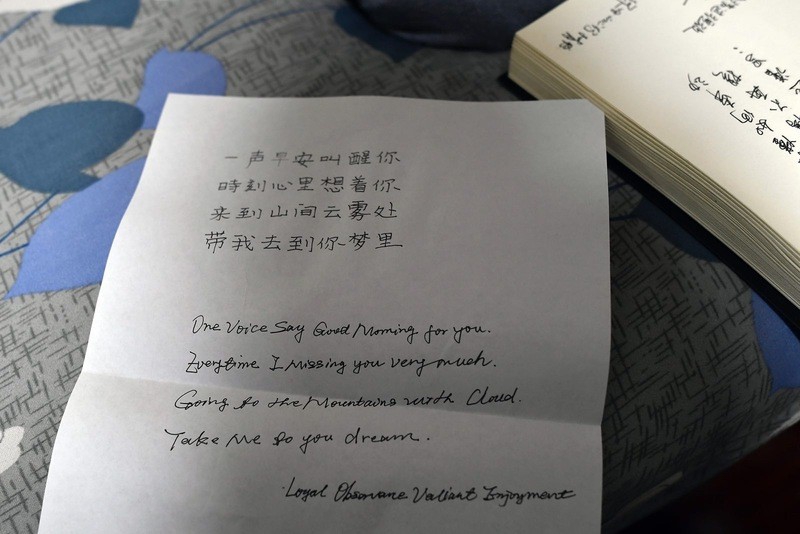 一声早安叫醒你
時刻心里想着你
来到山间云雾处
带我去到你梦里
One Voice Say Good Morning for you.
Everytime I Missing you very much.
Going to the Mountains with Cloud.
Take Me to you dream.
Loyal Obsevane Valiant Enjoyment